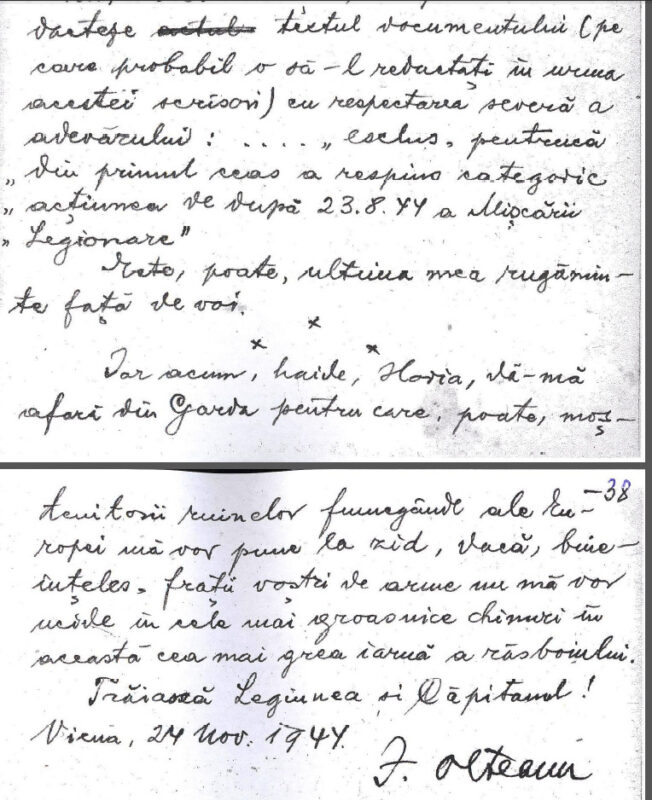 dacteze actul textul documentului (pe
care probabil o să-l redactați în urma
acestei scrisori) cu respectarea severă a
adevărului: .... „esclus, pentrucă
„din primul ceas a respins categoric
„acțiunea de după 23.8.44 a Mișcării
„Legionare"
Este, poate, ultima mea rugămin-
te față de voi.
x x x
Iar acum, haide, Horia, dă-mă
afară din Garda pentru care, poate, moș-
-38
tenitorii ruinelor fumegânde ale Eu-
ropei mă vor pune la zid, dacă, bine-
ințeles, frații vostri de arme nu mă vor
ucide în cele mai groasnice chinuri în
această cea mai grea iarnă a răsboiului.
Trăiască Legiunea și Căpitanul!
Viena, 24 Nov. 1944.
I. Olteanu